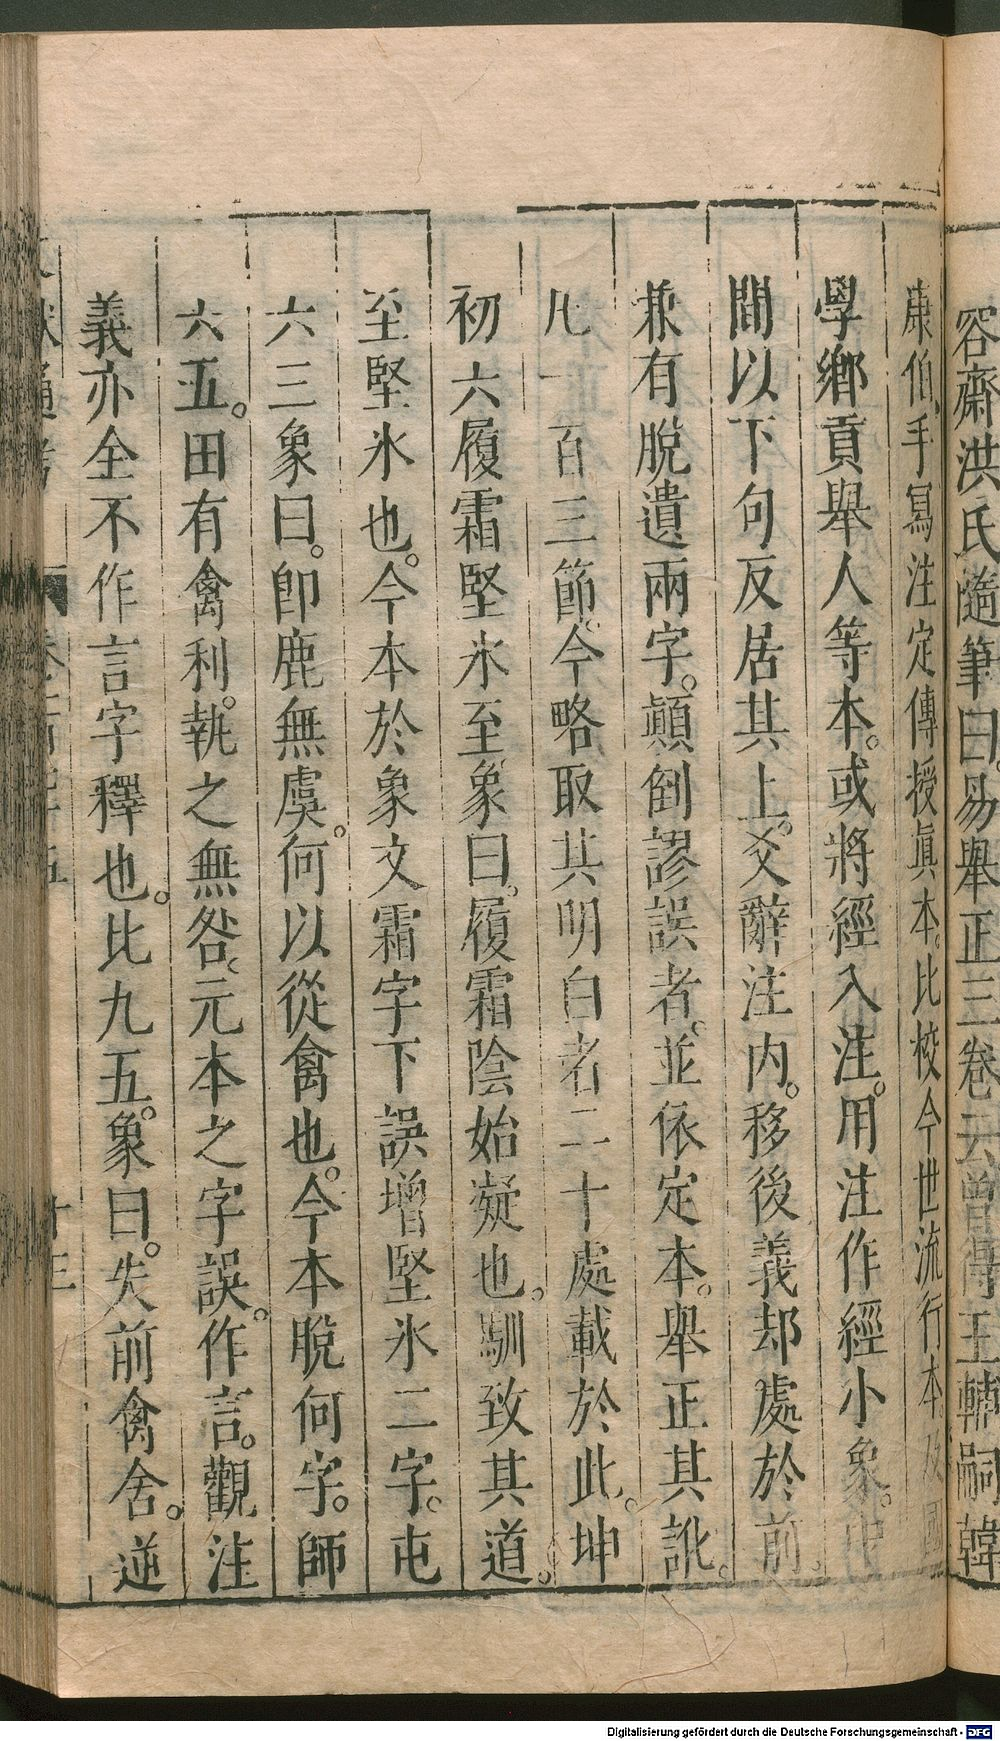 容齋洪氏隨筆曰易舉正三卷云曾得王輔嗣韓
康伯手寫注定傳授眞本比校今世流行本及國
學鄉貢舉人等本或將經入注用注作經小象中
間以下句反居其上爻辭注內移後義却處於前
兼有脫遺兩字顛倒謬誤者並依定本舉正其訛
凡一百三節今略取其明白者二十處載於此坤
初六履霜堅氷至象曰履霜陰始凝也馴致其道
至堅氷也今本於象文霜字下誤增堅氷二字屯
六三象曰卽鹿無虞何以從禽也今本脫何字師
六五田有禽利執之無咎元本之字誤作言觀注
義亦全不作言字釋也比九五象曰失前禽舍逆
十三
Digitalisierung gefördert durch die Deutsche Forschungsgemeinschaft - DFG